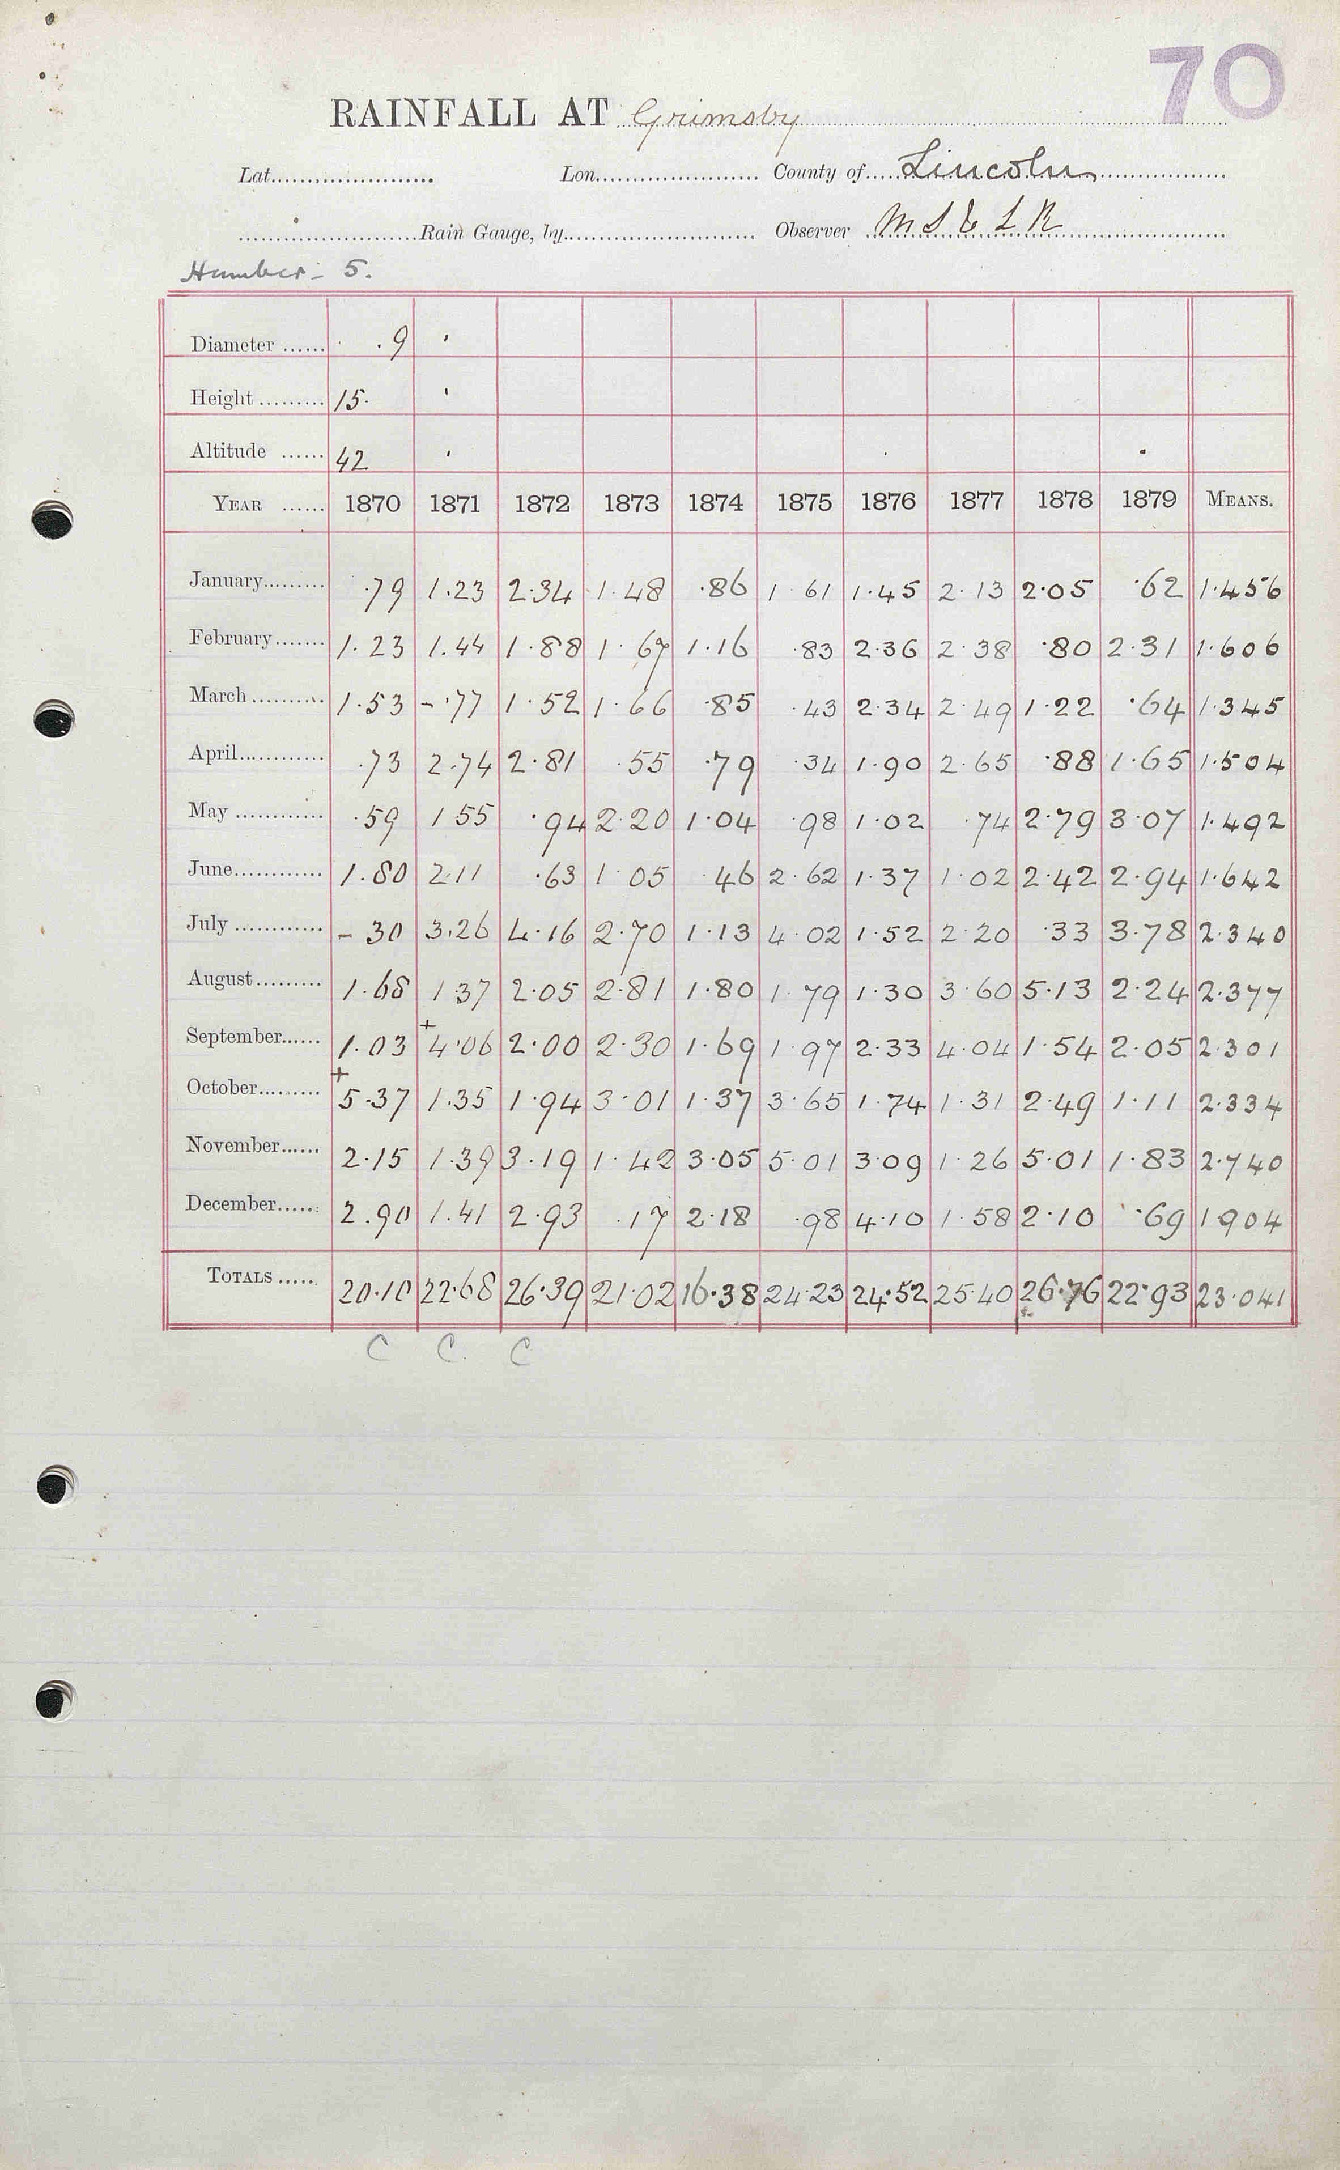 70
RAINFALL AT Grimsby
Lat. Lon. County of Lincoln
Rain Gauge, by Observer M S & L R
Humber - 5.
Diameter ...... .9
Height ......... 15.
Altitude ...... 42
YEAR ...... 1870 1871 1872 1873 1874 1875 1876 1877 1878 1879 MEANS.
January......... .79 1.23 2.34 1.48 .86 1.61 1.45 2.13 2.05 .62 1.456
February....... 1.23 1.44 1.88 1.67 1.16 .83 2.36 2.38 .80 2.31 1.606
March .......... 1.53 - .77 1.52 1.66 .85 .43 2.34 2.49 1.22 .64 1.345
April............ .73 2.74 2.81 .55 .79 .34 1.90 2.65 .88 1.65 1.504
May ............ .59 1 55 .94 2.20 1.04 .98 1.02 .74 2.79 3.07 1.492
June............ 1.80 2.11 .63 1.05 46 2.62 1.37 1.02 2.42 2.94 1.642
July ............ - 30 3.26 4.16 2.70 1.13 4.02 1.52 2.20 .33 3.78 2.340
August......... 1.68 1 37 2.05 2.81 1.80 1.79 1.30 3.60 5.13 2.24 2.377
September...... 1.03 + 4.06 2.00 2.30 1.69 1.97 2.33 4.04 1.54 2.05 2.301
October......... + 5.37 1.35 1.94 3.01 1.37 3.65 1.74 1.31 2.49 1.11 2.334
November...... 2.15 1.39 3.19 1.42 3.05 5.01 3.09 1.26 5.01 1.83 2.740
December...... 2.90 1.41 2.93 .17 2.18 .98 4.10 1.58 2.10 .69 1904
TOTALS ..... 20.10 22.68 26.39 21.02 16.38 24.23 24.52 25.40 26.76 22.93 23.041
C C. C